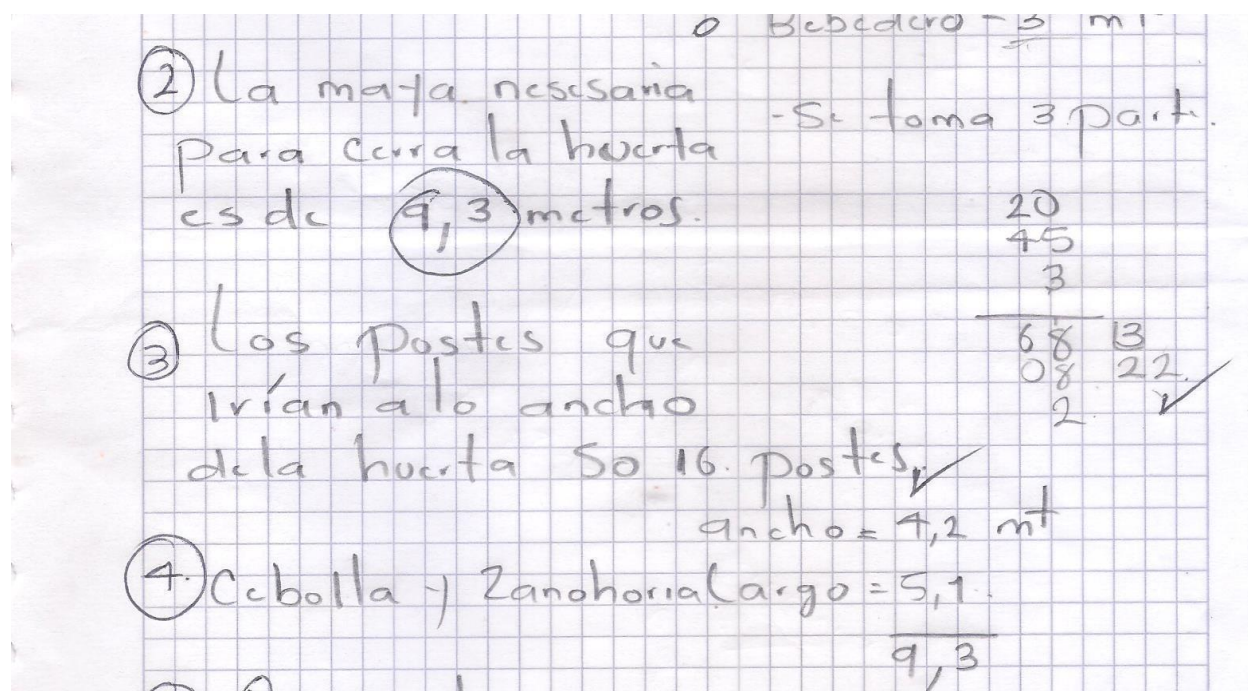 o Bebedero - 3 mt
② La maya nesesaria
para cerra la huerta
es de 9,3 metros.
- Se toma 3 part.
20
45
3
68 13
08 22
2
③ Los postes que
Irían a lo ancho
dela huerta So 16. postes
④ Cebolla y Zanohoria
ancho = 4,2 mt
Largo = 5,1.
9,3